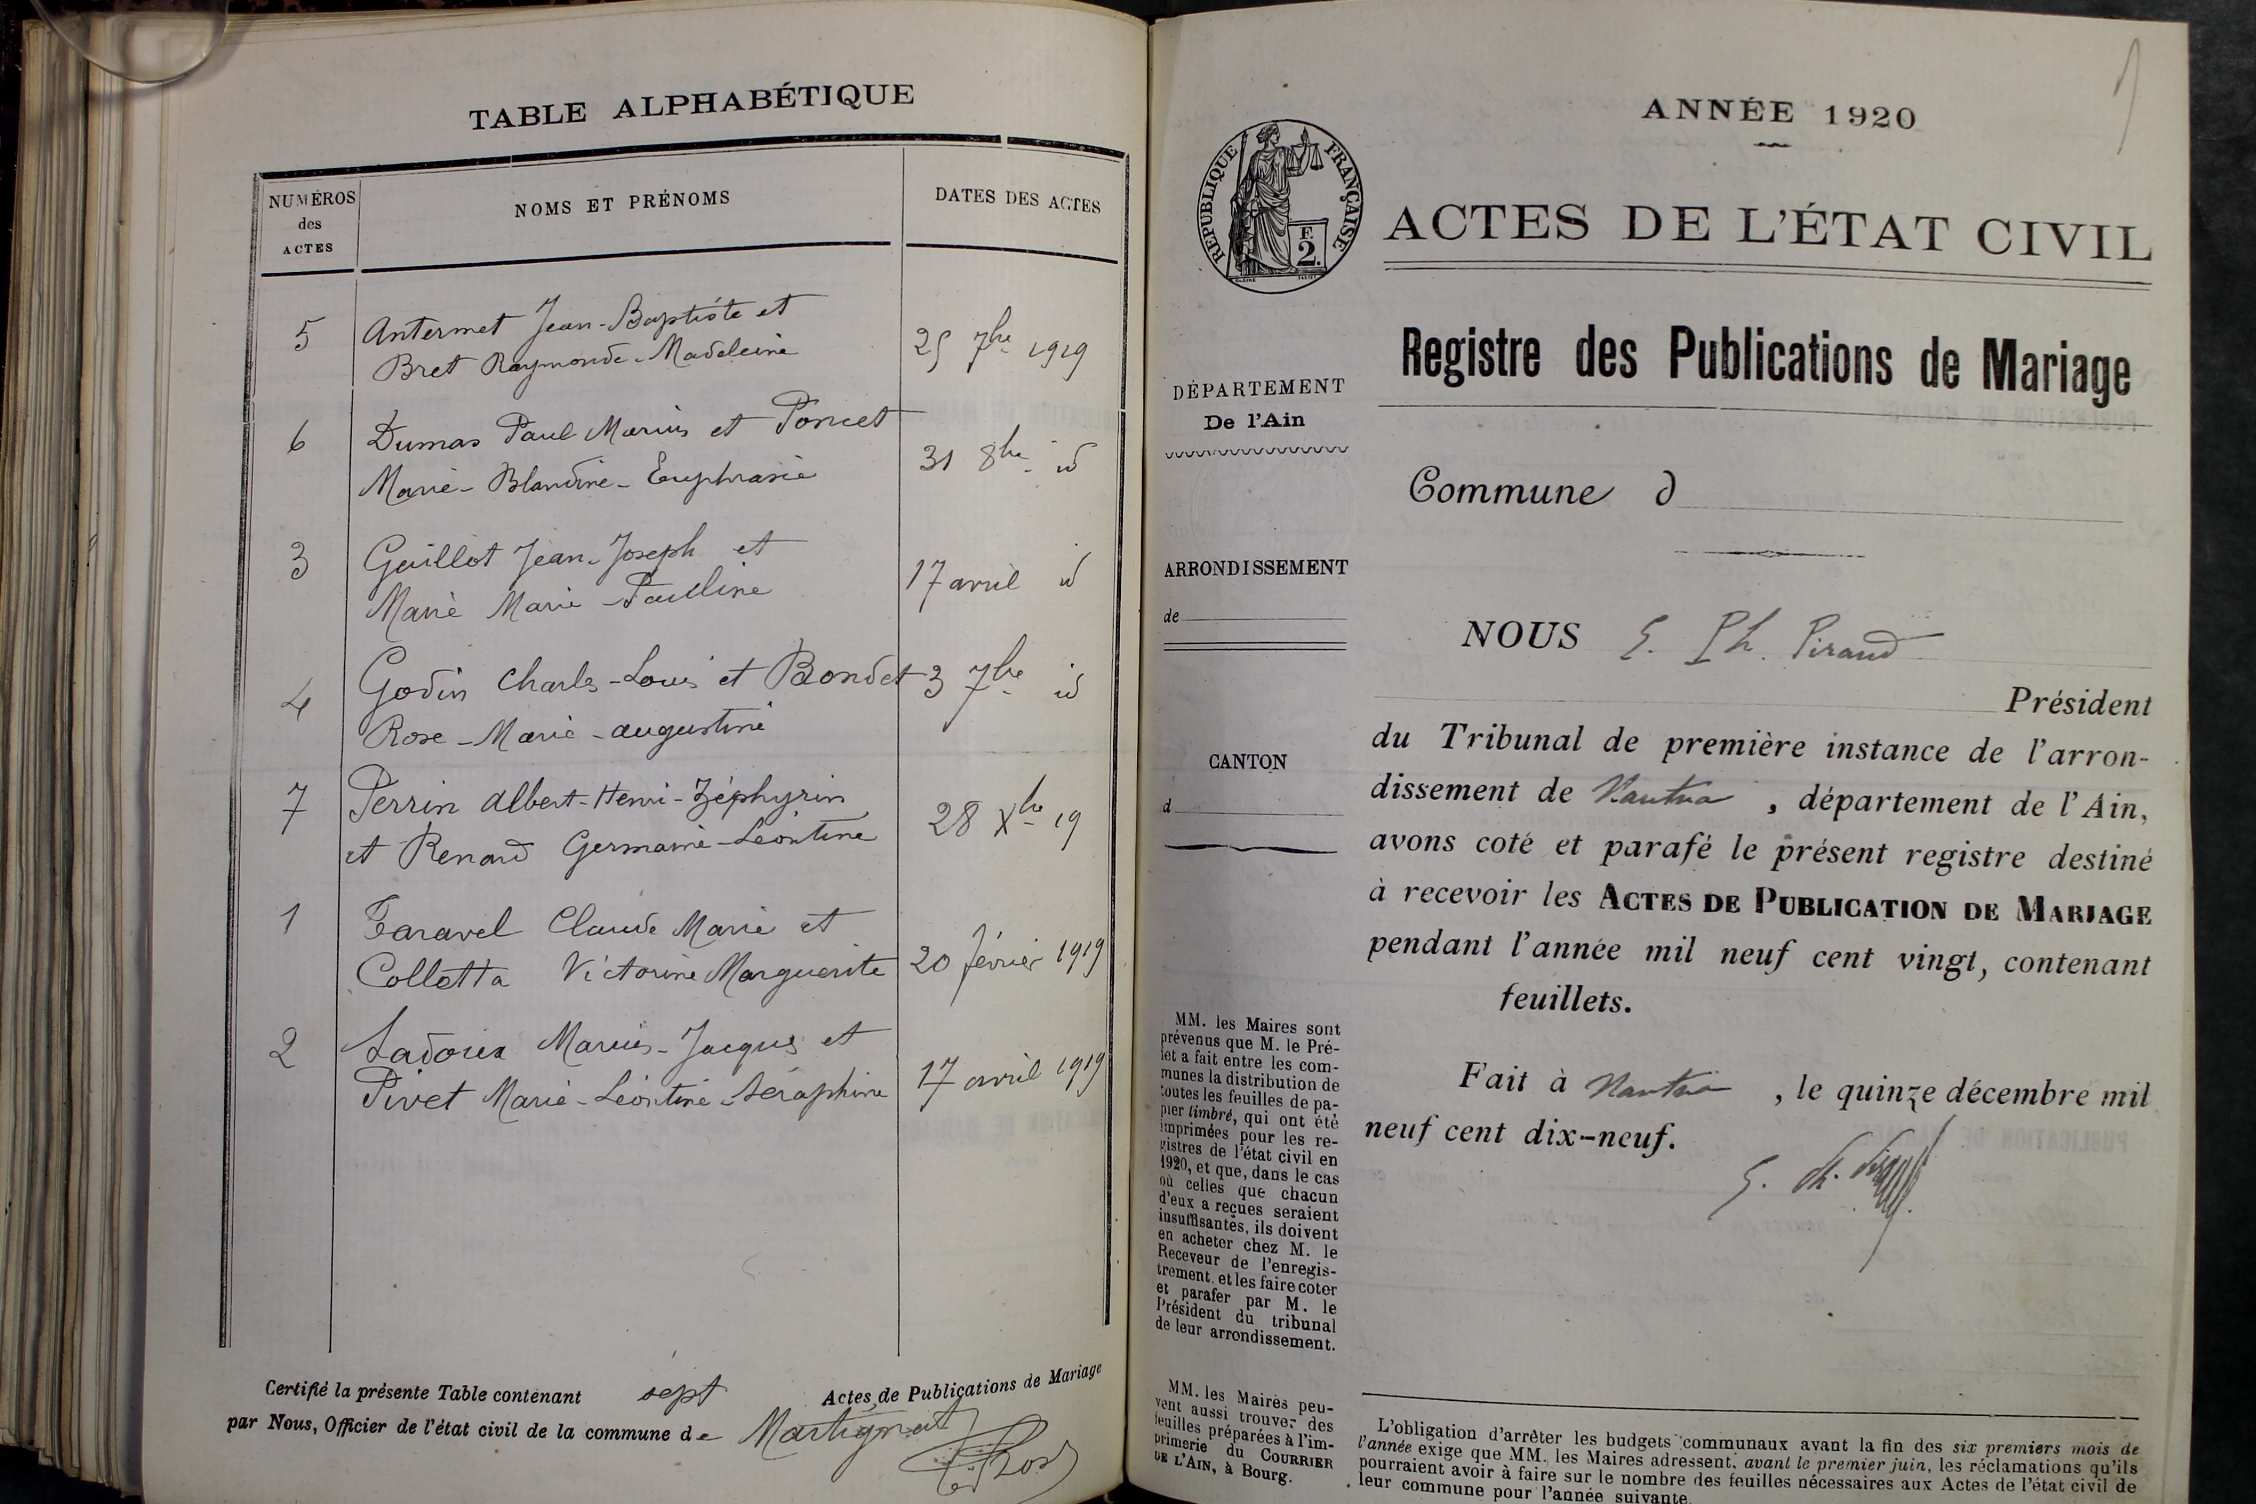 TABLE ALPHABÉTIQUE
NUMÉROS
des
ACTES
NOMS ET PRÉNOMS
DATES DES ACTES
5 Antermet Jean-Baptiste et
Bret Raymonde-Madeleine 25 7bre 1919
6 Dumas Paul Marius et Poncet
Marie-Blandine-Euphrasie 31 8bre id
3 Guillot Jean-Joseph et
Marie Marie-Paulline 17 avril id
4 Godin Charles-Louis et Bondet 3 7bre id
Rose-Marie-augustine
7 Perrin Albert-Henri-Zéphyrin
et Renard Germaine-Léontine 28 Xbre 19
1 Taravel Claude Marie et
Colletta Victorine Marguerite 20 février 1919
2 Ladoux Marius-Jacques et
Pivet Marie-Léontine-Séraphine 17 avril 1919
Certifié la présente Table contenant sept Actes de Publications de Mariage
par Nous, Officier de l'état civil de la commune de Martignat
ANNÉE 1920
RÉPUBLIQUE FRANÇAISE
F.
2.
ACTES DE L'ÉTAT CIVIL
Registre des Publications de Mariage
DÉPARTEMENT
De l'Ain
Commune d
ARRONDISSEMENT
de
NOUS G. Ph. Piraud
Président
du Tribunal de première instance de l'arron-
dissement de Nantua, département de l'Ain,
avons coté et parafé le présent registre destiné
à recevoir les ACTES DE PUBLICATION DE MARIAGE
pendant l'année mil neuf cent vingt, contenant
feuillets.
CANTON
d
Fait à Nantua, le quinze décembre mil
neuf cent dix-neuf.
MM. les Maires sont
prévenus que M. le Pré-
fet a fait entre les com-
munes la distribution de
toutes les feuilles de pa-
pier timbré, qui ont été
imprimées pour les re-
gistres de l'état civil en
1920, et que, dans le cas
où celles que chacun
d'eux a reçues seraient
insuffisantes, ils doivent
en acheter chez M. le
Receveur de l'enregis-
trement, et les faire coter
et parafer par M. le
Président du tribunal
de leur arrondissement.
MM. les Maires peu-
vent aussi trouver des
feuilles préparées à l'im-
primerie du COURRIER
DE L'AIN, à Bourg.
L'obligation d'arrêter les budgets communaux avant la fin des six premiers mois de
l'année exige que MM. les Maires adressent, avant le premier juin, les réclamations qu'ils
pourraient avoir à faire sur le nombre des feuilles nécessaires aux Actes de l'état civil de
leur commune pour l'année suivante.